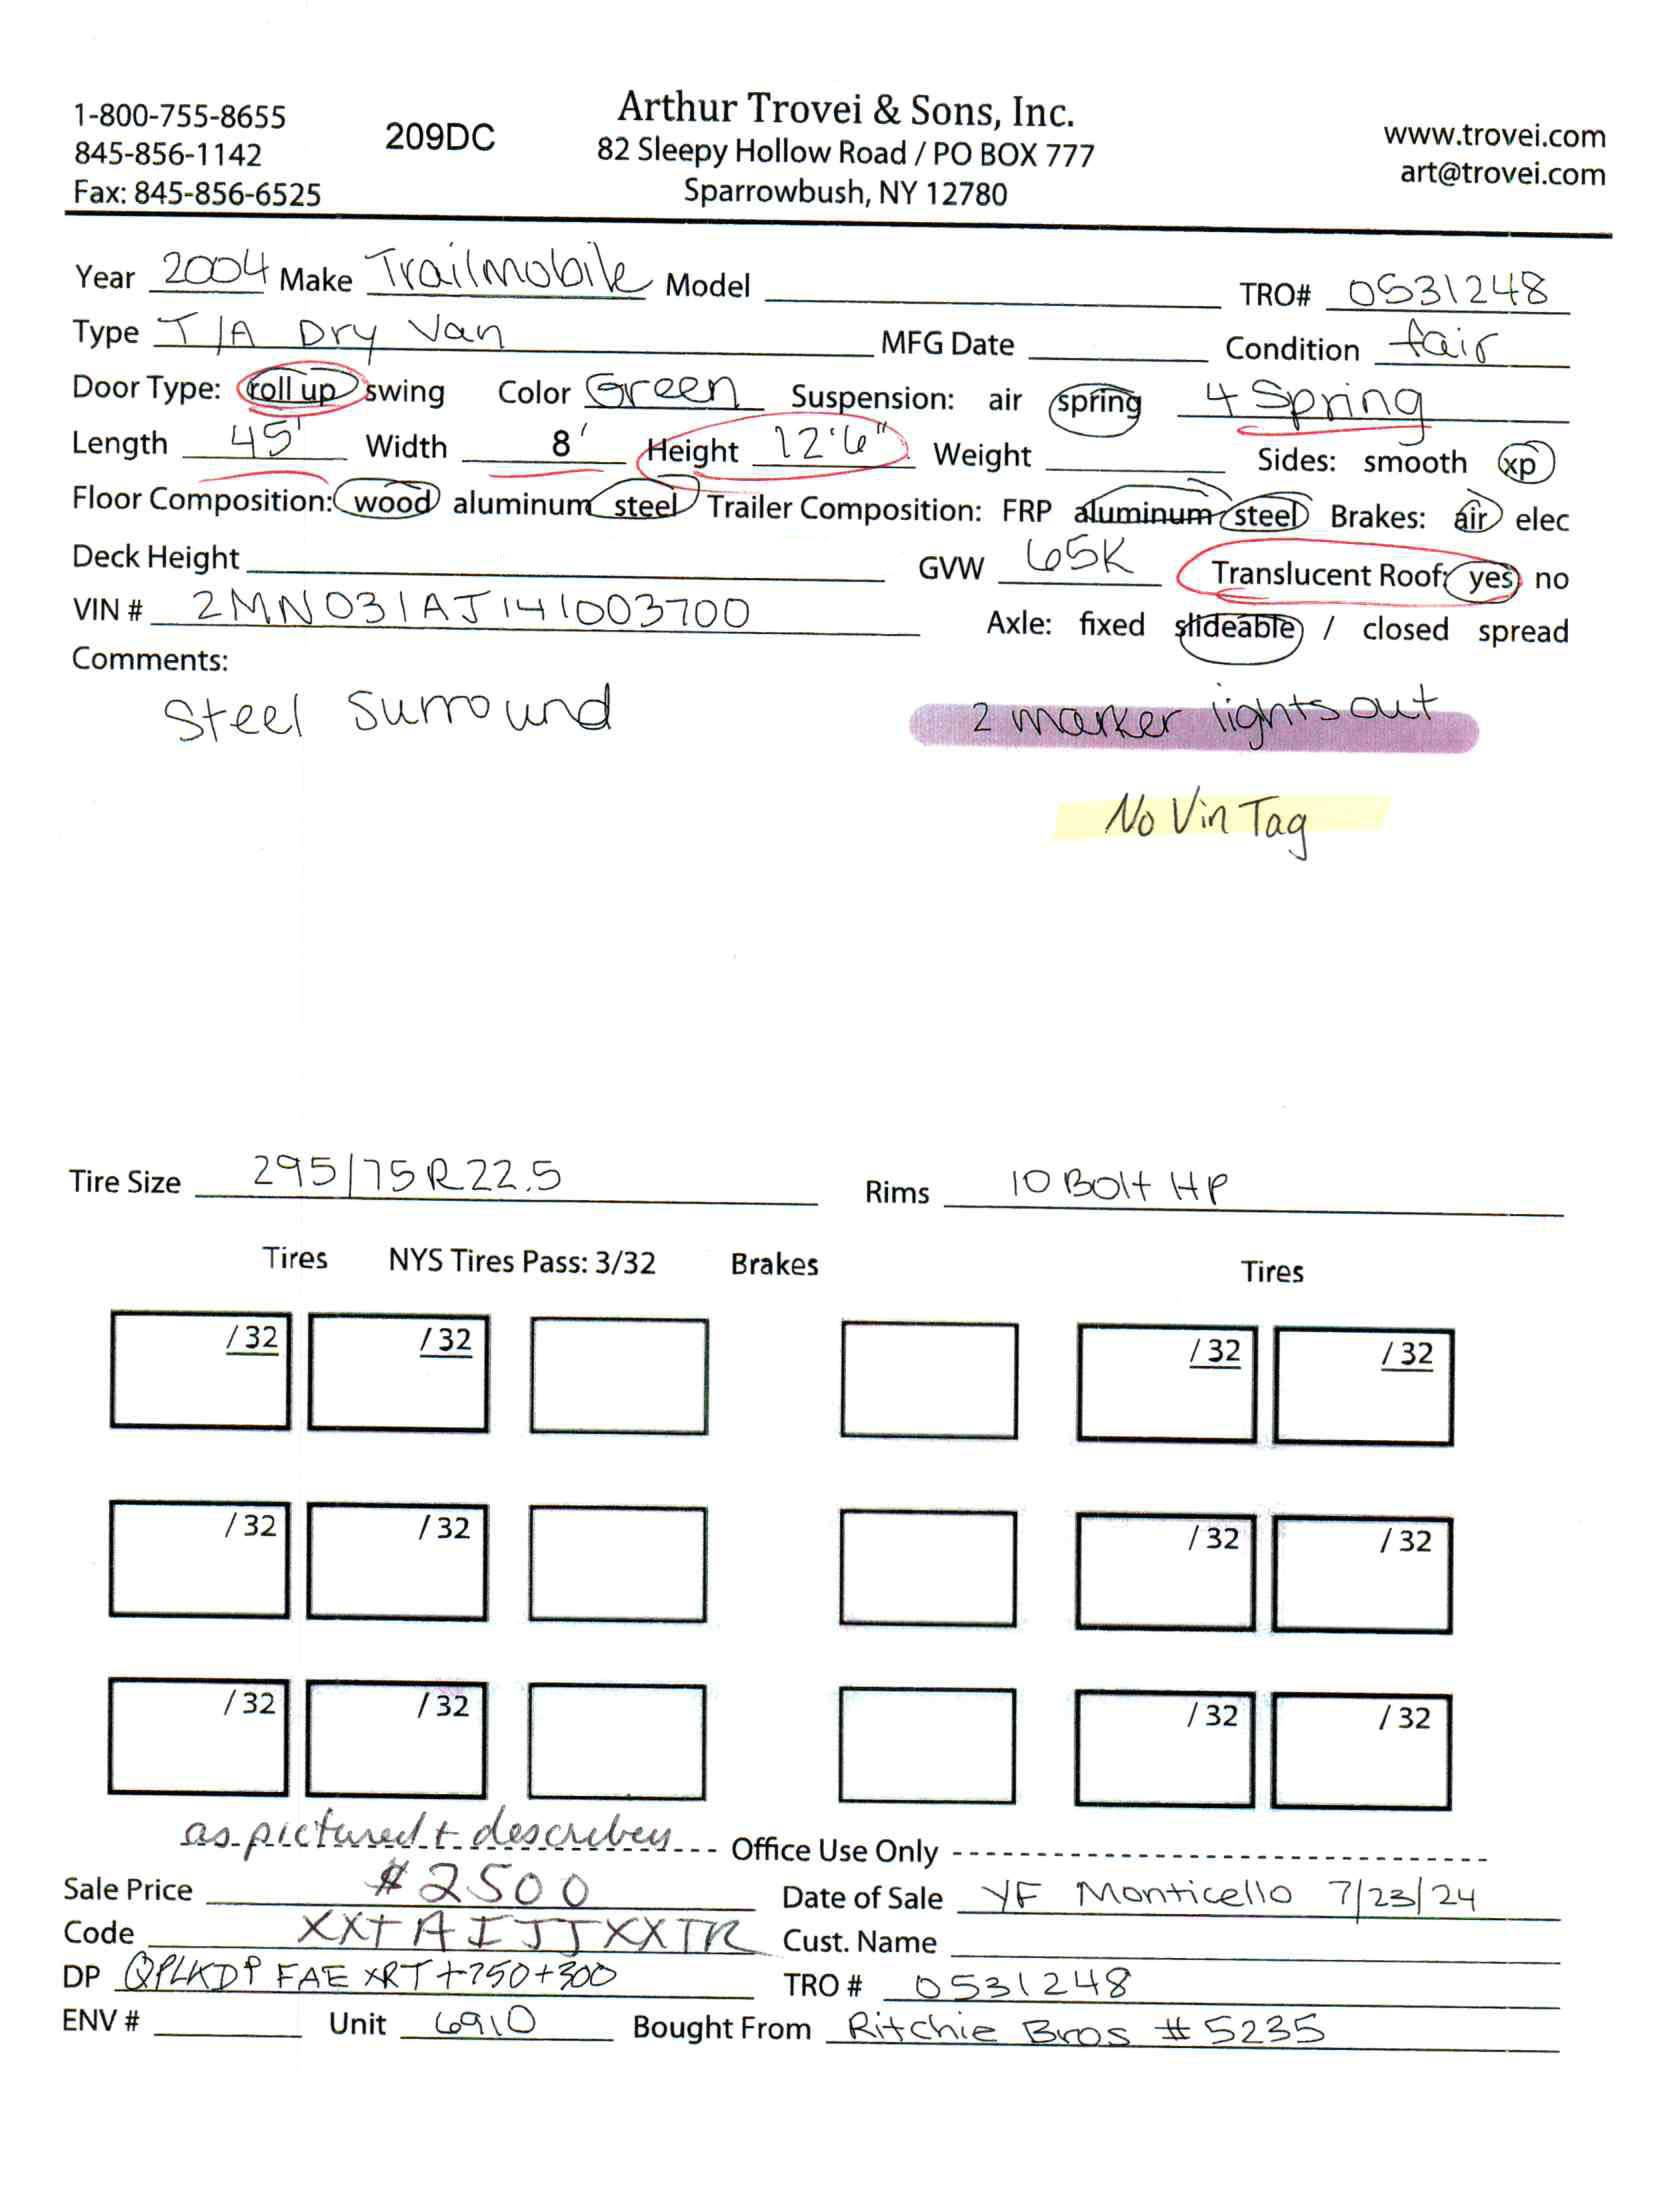 1-800-755-8655
845-856-1142
Fax: 845-856-6525
209DC
Arthur Trovei & Sons, Inc.
82 Sleepy Hollow Road / PO BOX 777
Sparrowbush, NY 12780
www.trovei.com
art@trovei.com
Year 2004 Make Trailmobile Model TRO# 0531248
Type T/A Dry Van MFG Date Condition fair
Door Type: roll up swing Color Green Suspension: air spring 4 Spring
Length 45' Width 8' Height 12'6" Weight Sides: smooth xp
Floor Composition: wood aluminum steel Trailer Composition: FRP aluminum steel Brakes: air elec
Deck Height GVW 65K Translucent Roof: yes no
VIN # 2MN031AJ141003700 Axle: fixed slideable / closed spread
Comments:
Steel Surround 2 marker lights out
No Vin Tag
Tire Size 295/75R22.5 Rims 10 Bolt HP
Tires NYS Tires Pass: 3/32 Brakes Tires
/32 /32 /32 /32
/32 /32 /32 /32
/32 /32 /32 /32
as pictured + Office Use Only
Sale Price $2500 Date of Sale YF Monticello 7/23/24
Code XXTAIJJXXTR Cust. Name
DP QPLKDP FAE XRT+750+300 TRO # 0531248
ENV # Unit 6910 Bought From Ritchie Bros #5235